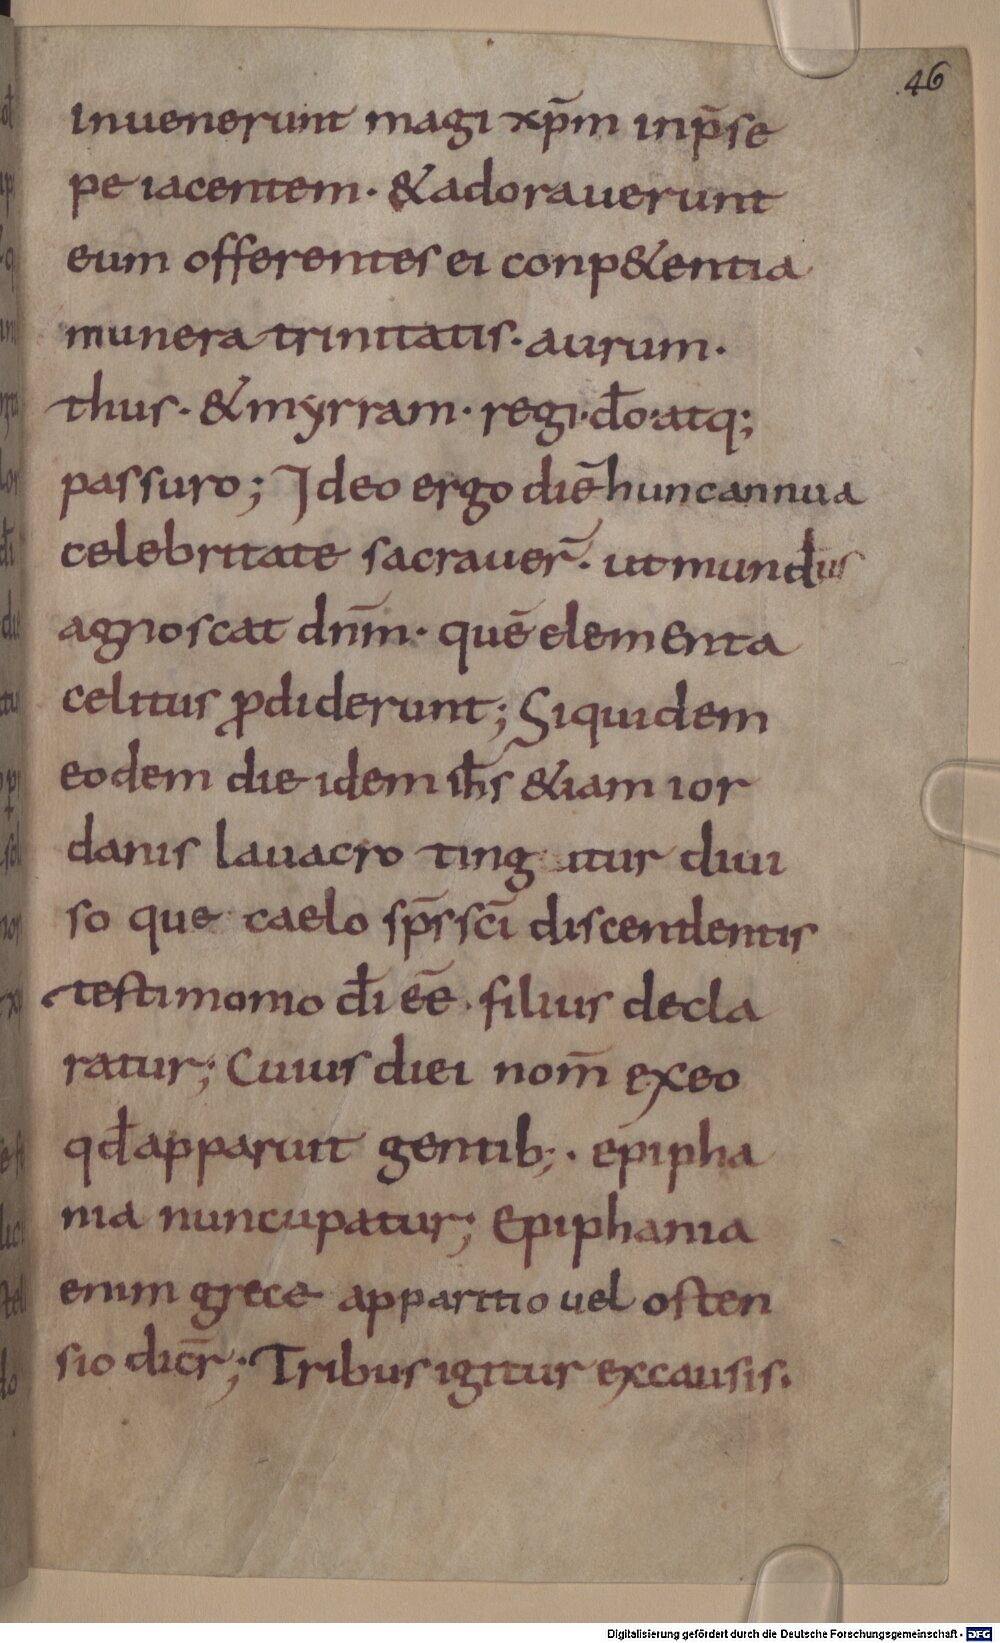 46
Inuenerunt magi xp̄m inp̄se
pe iacentem· &adorauerunt
eum offerentes ei conp&entia
munera trinitatis· aurum·
thus· &myrram· regi·do̅·atq;
passuro; Ideo ergo diē huncannua
celebritate sacrauer̄· utmundus
agnoscat dn̄m· quē elementa
celitus ꝓdiderunt; Siquidem
eodem die idem ih̄s &iam ior
danis lauacro tinguitur diui
so que caelo sp̄s sc̄i discendentis
testimonio dī eē· filius decla
ratur; Cuius diei nom̄ exeo
qđapparuit gentib;· epipha
nia nuncupatur; Epiphania
enim grece apparitio uel osten
sio dicr̄; Tribus igitur excausis·
Digitalisierung gefördert durch die Deutsche Forschungsgemeinschaft - DFG